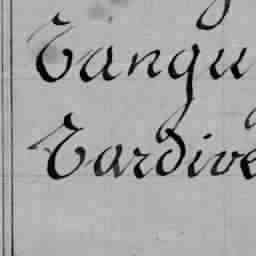 Tangu
Tardive